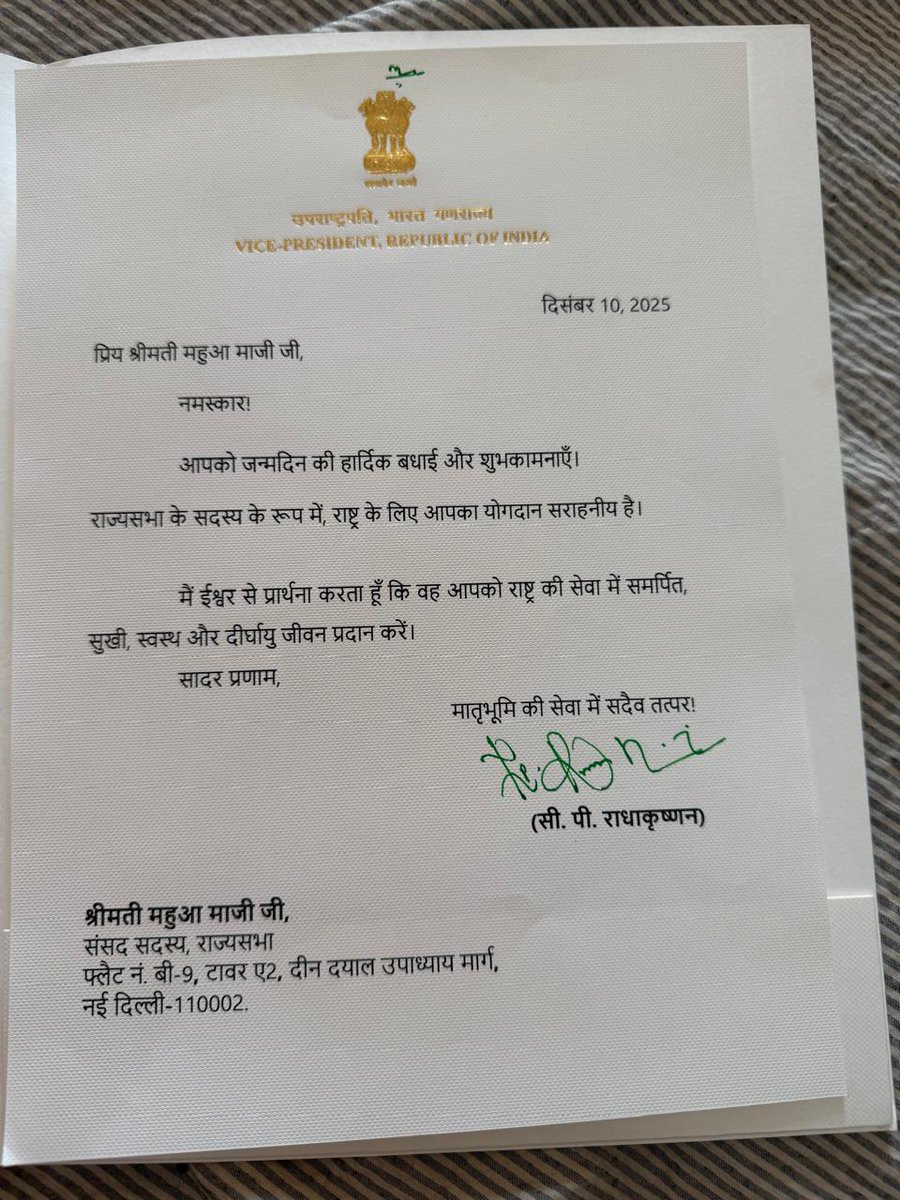 सत्यमेव जयते
उपराष्ट्रपति, भारत गणराज्य
VICE-PRESIDENT, REPUBLIC OF INDIA
दिसंबर 10, 2025
प्रिय श्रीमती महुआ माजी जी,
नमस्कार!
आपको जन्मदिन की हार्दिक बधाई और शुभकामनाएँ।
राज्यसभा के सदस्य के रूप में, राष्ट्र के लिए आपका योगदान सराहनीय है।
मैं ईश्वर से प्रार्थना करता हूँ कि वह आपको राष्ट्र की सेवा में समर्पित,
सुखी, स्वस्थ और दीर्घायु जीवन प्रदान करें।
सादर प्रणाम,
मातृभूमि की सेवा में सदैव तत्पर!
(सी. पी. राधाकृष्णन)
श्रीमती महुआ माजी जी,
संसद सदस्य, राज्यसभा
फ्लैट नं. बी-9, टावर ए2, दीन दयाल उपाध्याय मार्ग,
नई दिल्ली-110002.